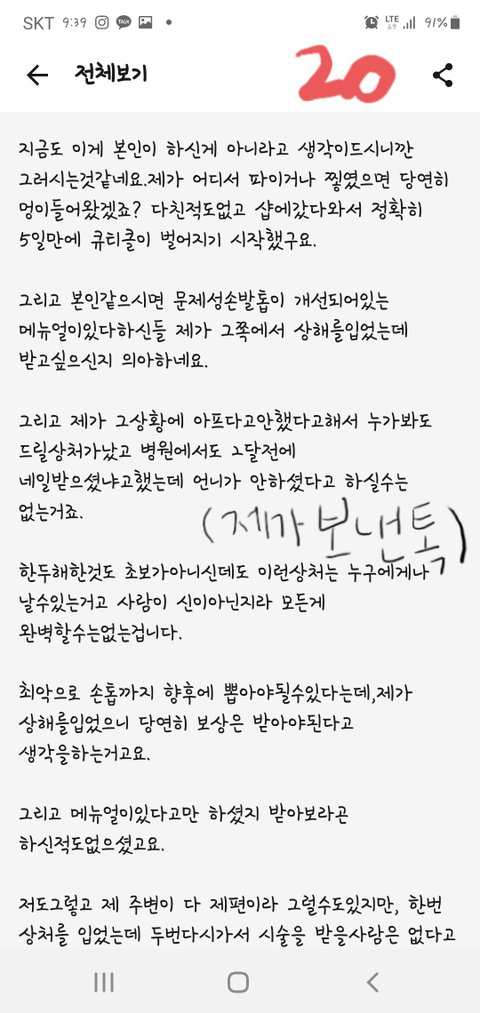 SKT 9:39 TALK LTE 91%
전체보기
20
지금도 이게 본인이 하신게 아니라고 생각이드시니깐
그러시는것같네요.제가 어디서 파이거나 찔렸으면 당연히
멍이들어왔겠죠? 다친적도없고 샵에갔다와서 정확히
5일만에 큐티클이 벌어지기 시작했구요.
그리고 본인같으시면 문제성손발톱이 개선되어있는
메뉴얼이있다하신들 제가 그쪽에서 상해를입었는데
받고싶으신지 의아하네요.
그리고 제가 그상황에 아프다고안했다고해서 누가봐도
드릴상처가났고 병원에서도 2달전에
네일받으셨냐고했는데 언니가 안하셨다고 하실수는
없는거죠.
(제가 보낸톡)
한두해한것도 초보가아니신데도 이런상처는 누구에게나
날수있는거고 사람이 신이아닌지라 모든게
완벽할수는없는겁니다.
최악으로 손톱까지 향후에 뽑아야될수있다는데,제가
상해를입었으니 당연히 보상은 받아야된다고
생각을하는거고요.
그리고 메뉴얼이있다고만 하셨지 받아보라곤
하신적도없으셨고요.
저도그렇고 제 주변이 다 제편이라 그럴수도있지만, 한번
상처를 입었는데 두번다시가서 시술을 받을사람은 없다고